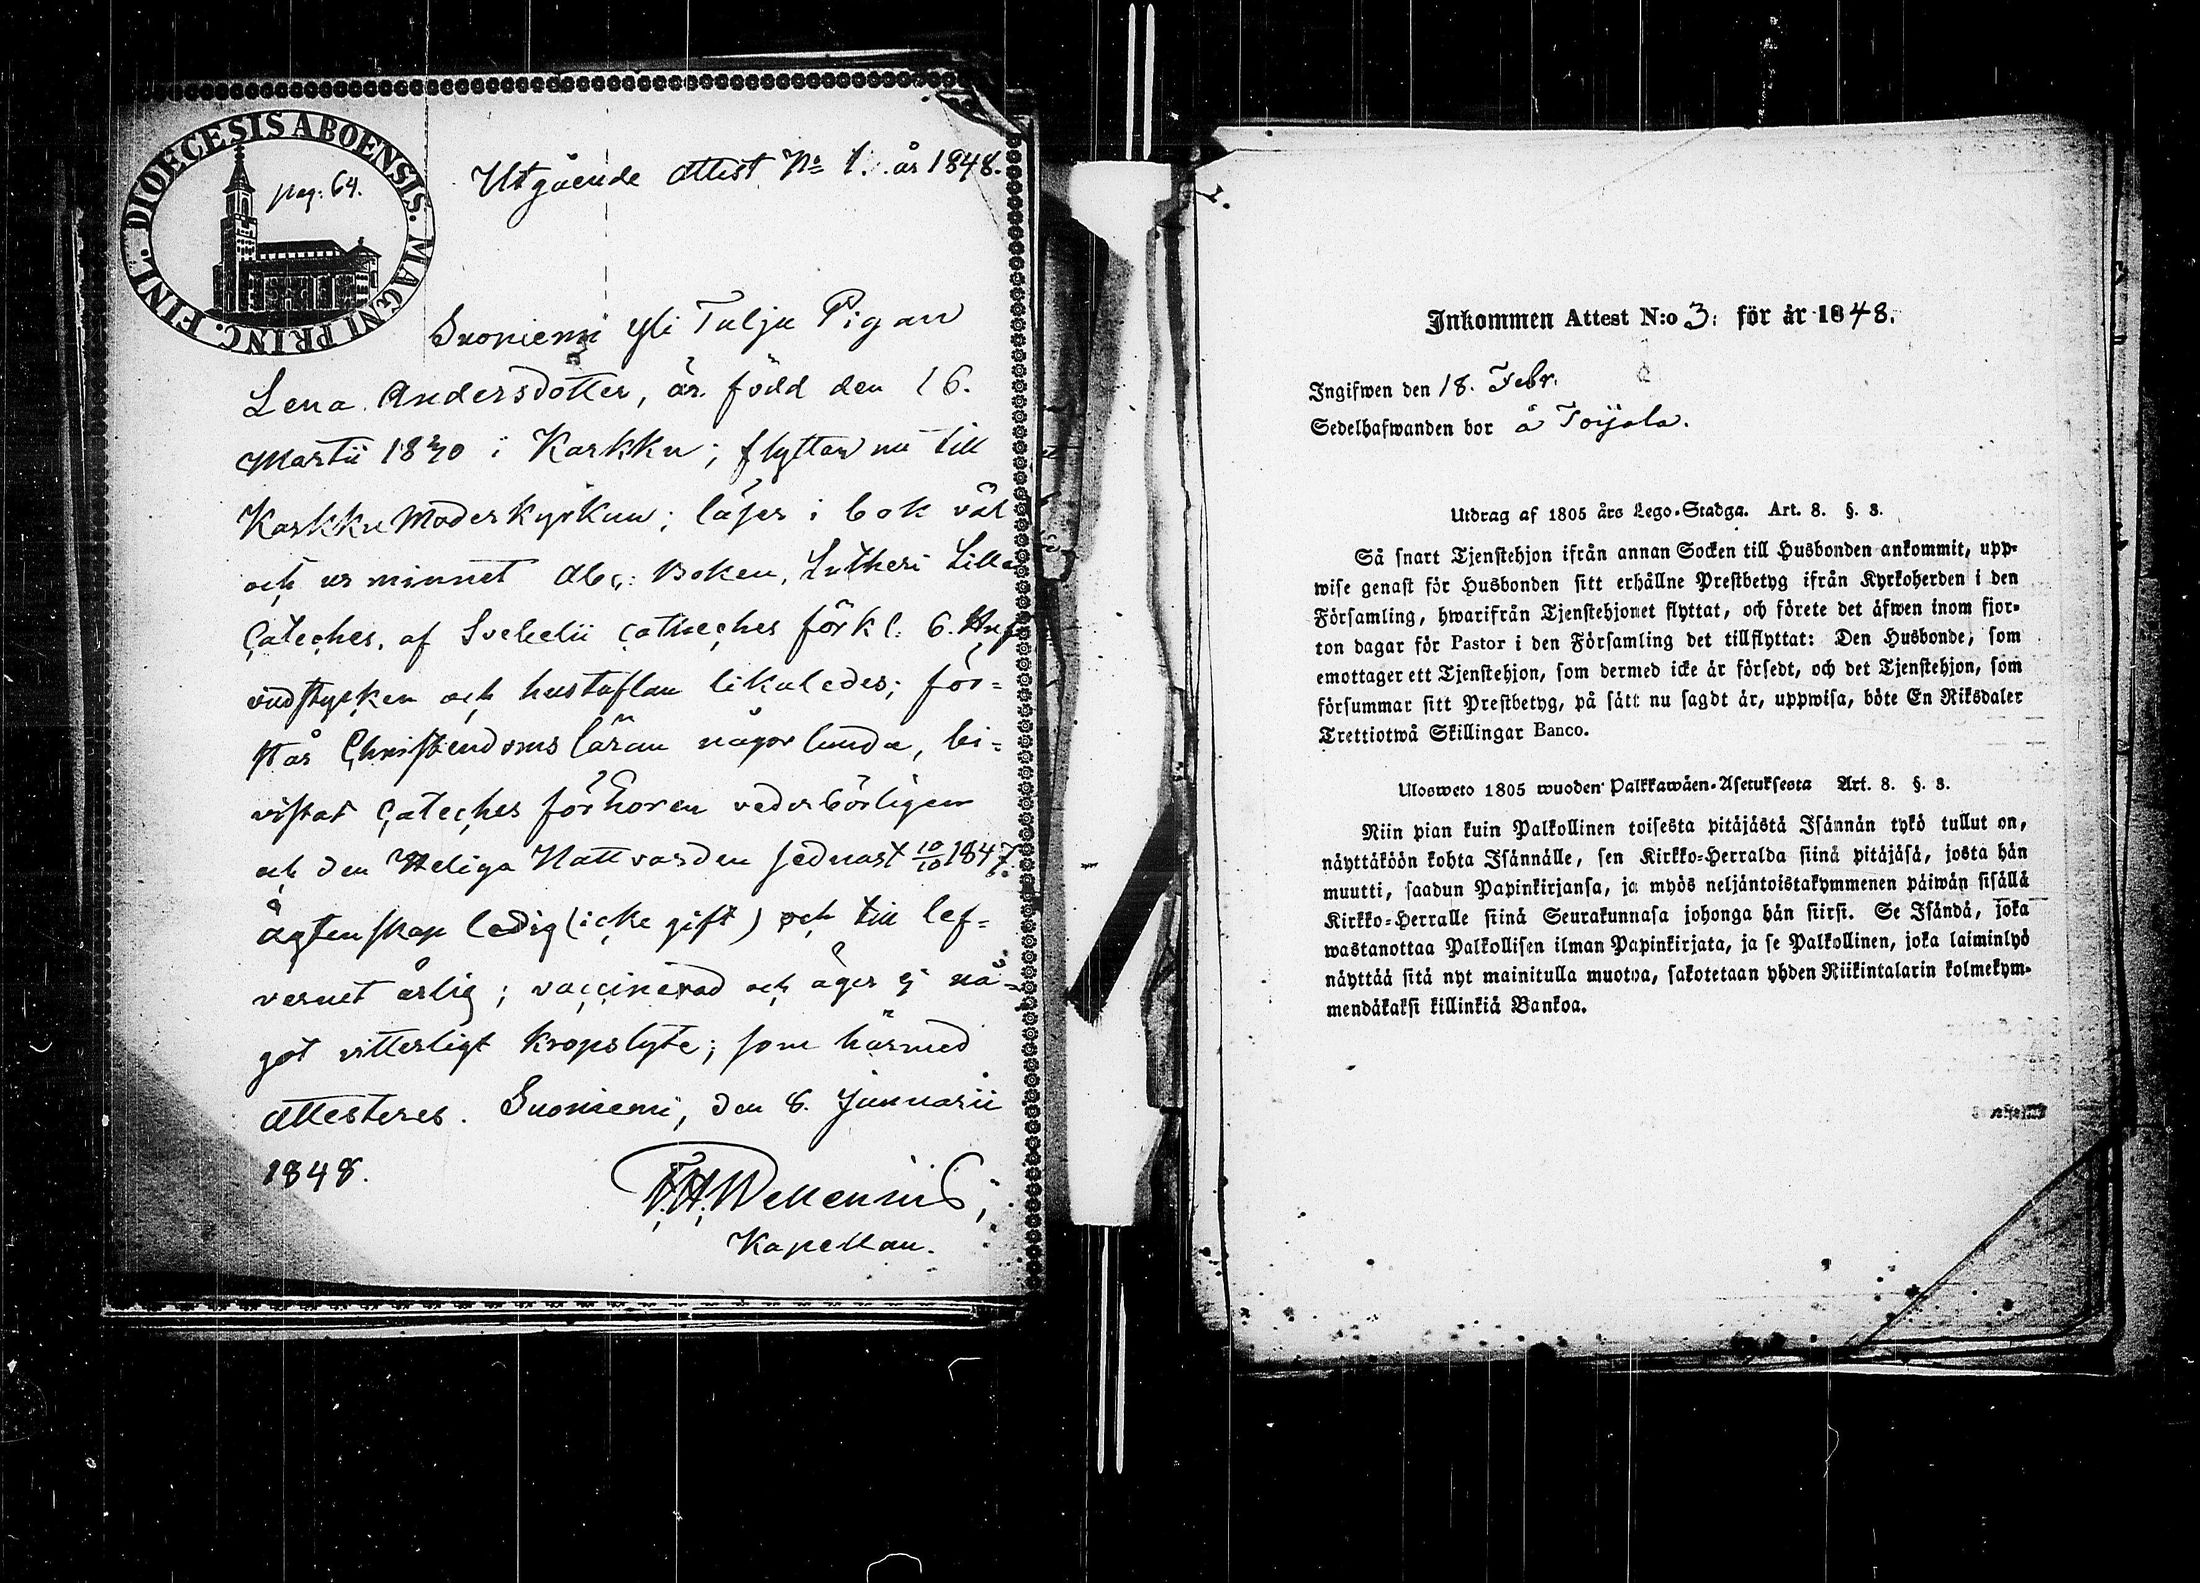 DIOECESIS ABOENSIS. MAGNI PRINC. FINL.
pag: 64.
Utgående Attest No 1. år 1848.
Suoniemi Yli Talja Pigan
Lena Andersdotter, är född den 16.
Martii 1830 i Karkku; flyttar nu till
Karkku Moderkyrkan; läser i bok väl
och ur minnet Abc: Boken, Lutheri Lilla
Cateches, af Svebelii Catheches förkl: 6. Huf
vudstycken och hustaflan likaledes; för-
står Christendoms läran någorlunda, bi-
vistat Cateches förhören vederbörligen
och den Heliga Nattvarden sednast 10/10 1847.
Ägtenskap ledig (icke gift) och till lef-
vernet ärlig; vaccinerad och äger ej nå-
got vitterligt kropslyte; som härmed
attesteres. Suoniemi, den 8. Januarii
1848.
Kapellan.
Inkommen Attest N:o 3: för år 1848.
Ingifwen den 18. Febr.
Sedelhafwanden bor å Toijala.
Utdrag af 1805 års Lego-Stadga. Art. 8. §. 3.
Så snart Tjenstehjon ifrån annan Socken till Husbonden ankommit, upp-
wise genast för Husbonden sitt erhållne Prestbetyg ifrån Kyrkoherden i den
Församling, hwarifrån Tjenstehjonet flyttat, och förete det äfwen inom fjor-
ton dagar för Pastor i den Församling det tillflyttat: Den Husbonde, som
emottager ett Tjenstehjon, som dermed icke är försedt, och det Tjenstehjon, som
försummar sitt Prestbetyg, på sätt nu sagdt är, uppwisa, böte En Riksdaler
Trettiotwå Skillingar Banco.
Ulosweto 1805 wuoden Palkkawäen-Asetuksesta Art. 8. §. 3.
Niin pian kuin Palkollinen toisesta pitäjästä Isännän tykö tullut on,
näyttäköön kohta Isännälle, sen Kirkko-Herralda siinä pitäjäsä, josta hän
muutti, saadun Papinkirjansa, ja myös neljäntoistakymmenen päiwän sisällä
Kirkko-Herralle siinä Seurakunnasa johonga hän siirsi. Se Isändä, joka
wastanottaa Palkollisen ilman Papinkirjata, ja se Palkollinen, joka laiminlyö
näyttää sitä nyt mainitulla muotoa, sakotetaan yhden Riikintalarin kolmekym-
mendäkaksi killinkiä Bankoa.